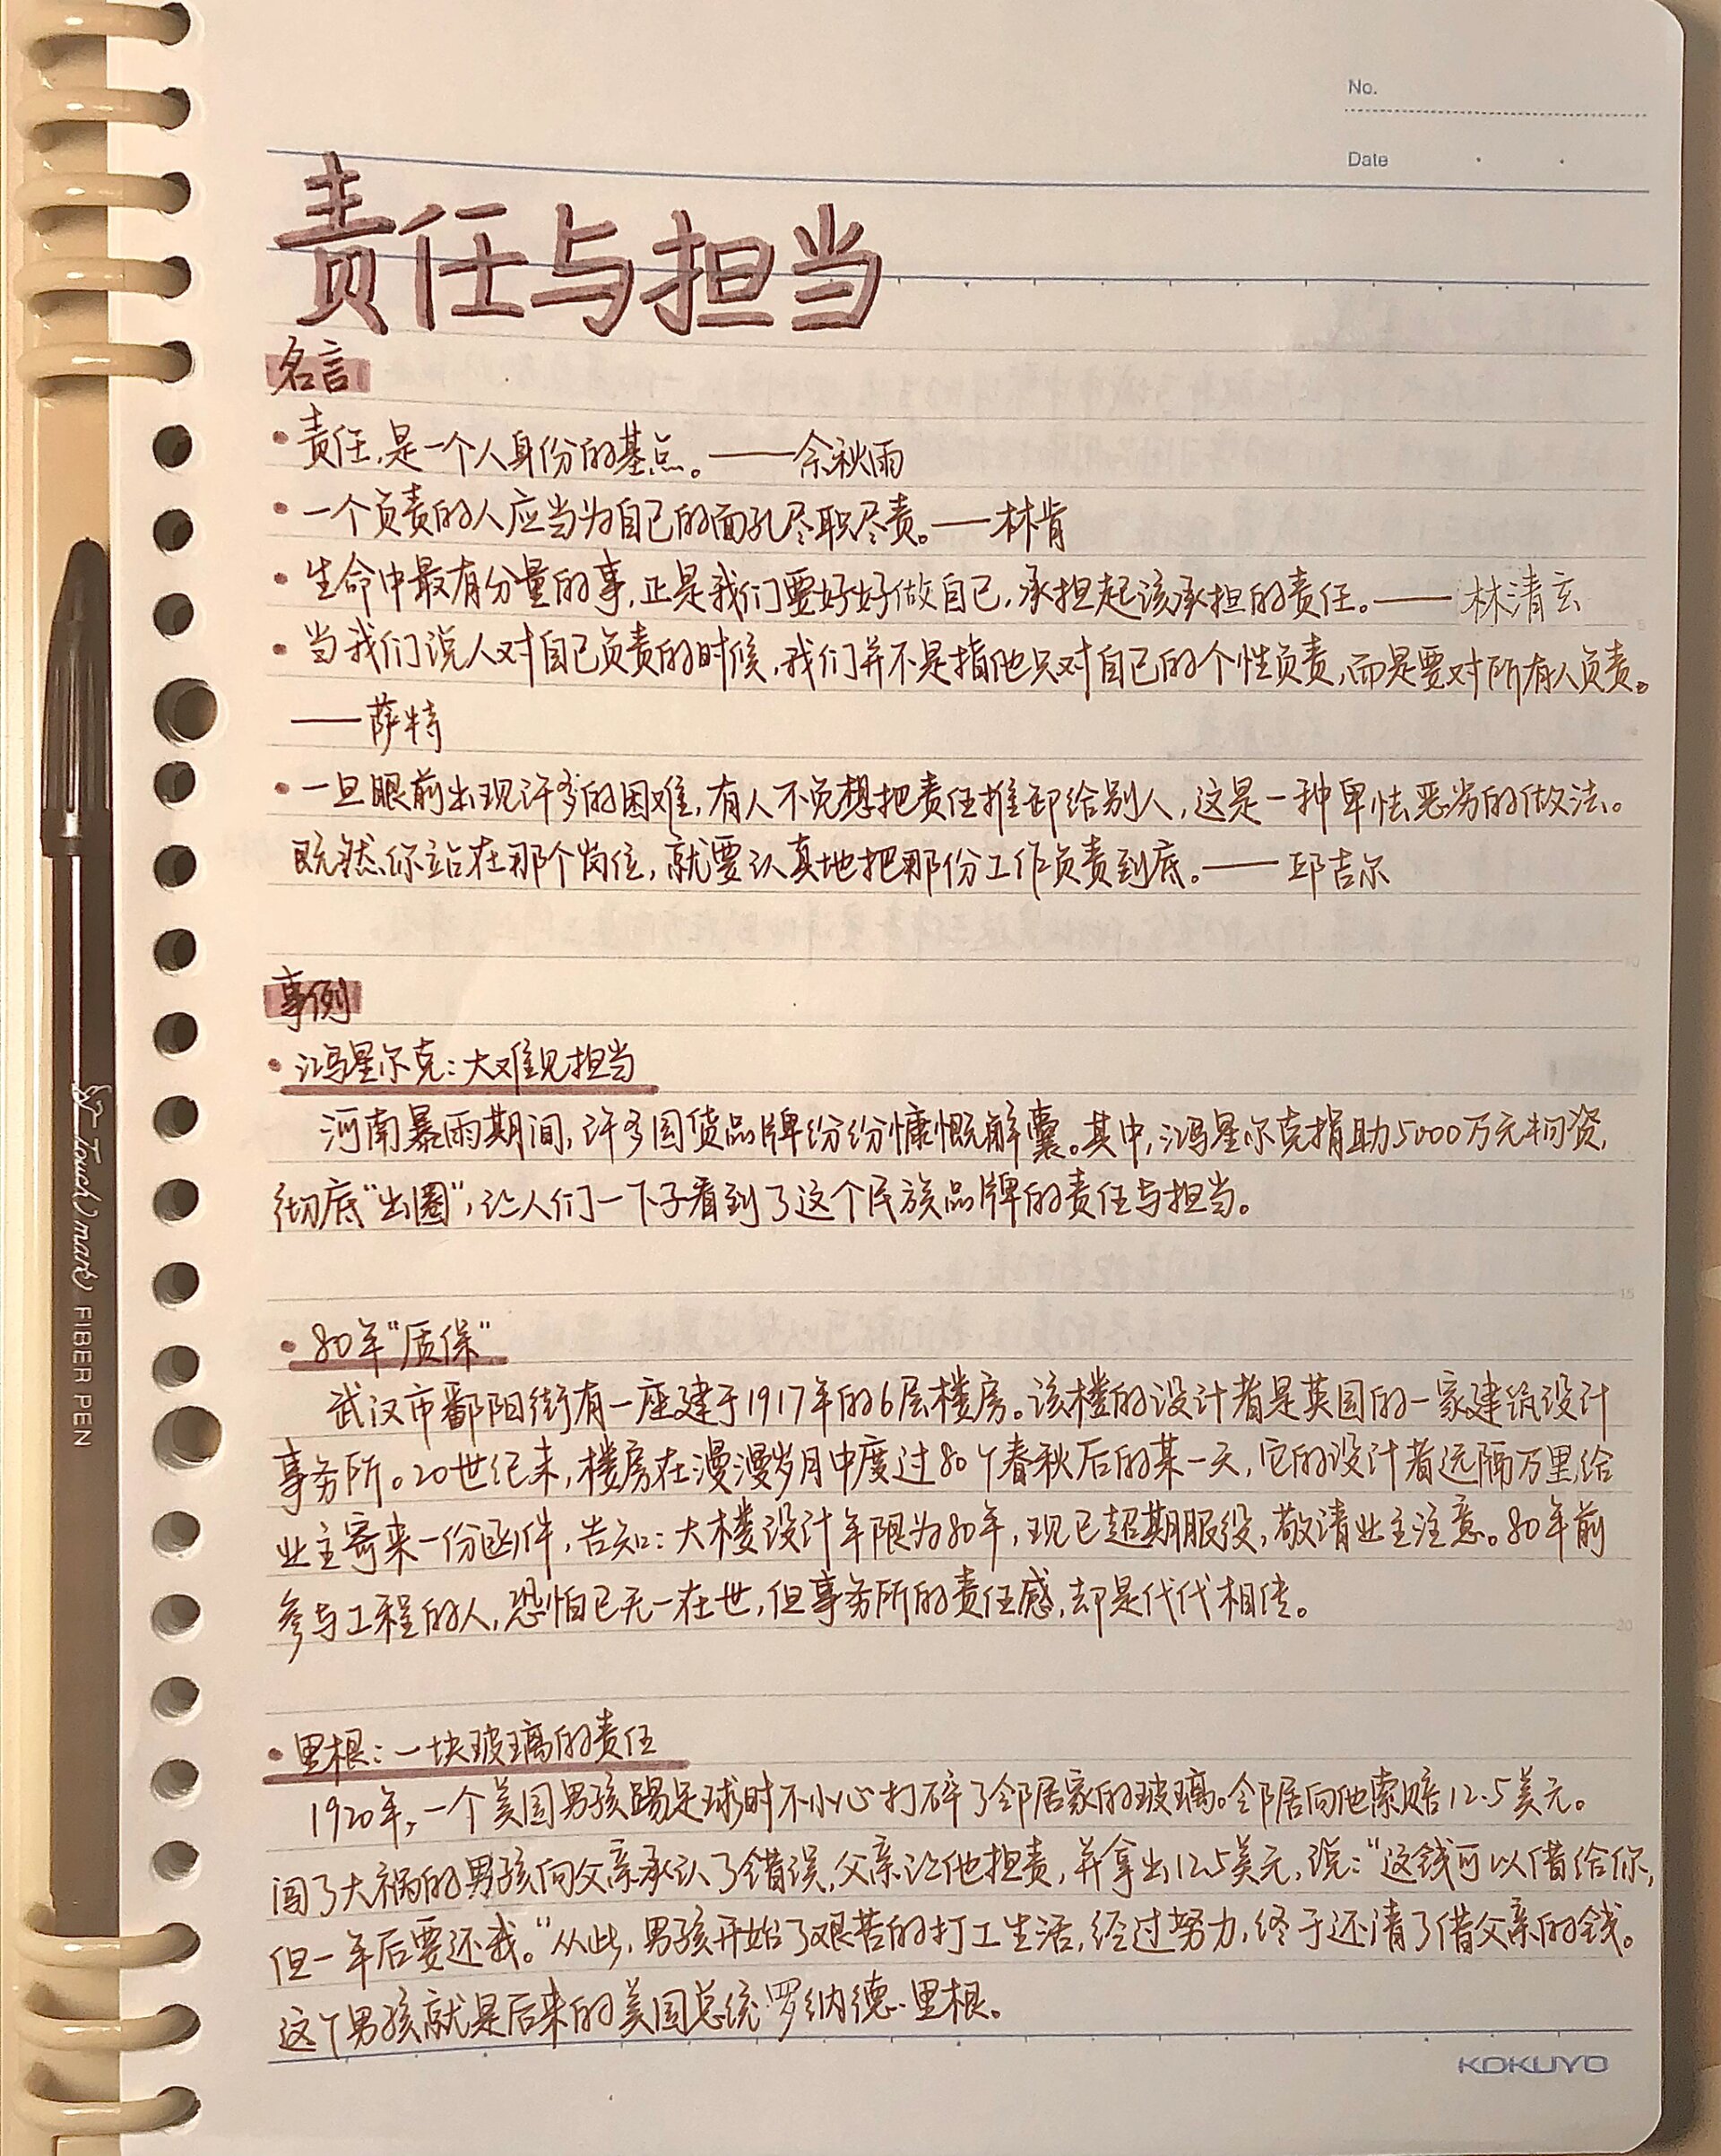 No.
Date
责任与担当
名言
·责任,是一个人身份的基点。——余秋雨
·一个负责的人应当为自己的面孔尽职尽责。——林肯
·生命中最有分量的事,正是我们要好好做自己,承担起该承担的责任。——林清玄
·当我们说人对自己负责的时候,我们并不是指他只对自己的个性负责,而是要对所有人负责。
——萨特
·一旦眼前出现许多的困难,有人不免想把责任推卸给别人,这是一种卑怯恶劣的做法。
既然你站在那个岗位,就要认真地把那份工作负责到底。——邱吉尔
事例
·鸿星尔克:大难见担当
河南暴雨期间,许多国货品牌纷纷慷慨解囊。其中,鸿星尔克捐助5000万元物资,
彻底“出圈”,让人们一下子看到了这个民族品牌的责任与担当。
·80年“质保”
武汉市鄱阳街有一座建于1917年的6层楼房。该楼的设计者是英国的一家建筑设计
事务所。20世纪末,楼房在漫漫岁月中度过80个春秋后的某一天,它的设计者远隔万里给
业主寄来一份函件,告知:大楼设计年限为80年,现已超期服役,敬请业主注意。80年前
参与工程的人,恐怕已无一在世,但事务所的责任感,却是代代相传。
·里根:一块玻璃的责任
1920年,一个美国男孩踢足球时不小心打碎了邻居家的玻璃。邻居向他索赔12.5美元。
闯了大祸的男孩向父亲承认了错误,父亲让他担责,并拿出12.5美元,说:“这钱可以借给你,
但一年后要还我。”从此,男孩开始了艰苦的打工生活,经过努力,终于还清了借父亲的钱。
这个男孩就是后来的美国总统罗纳德·里根。
KOKUYO
Touch mark FIBER PEN